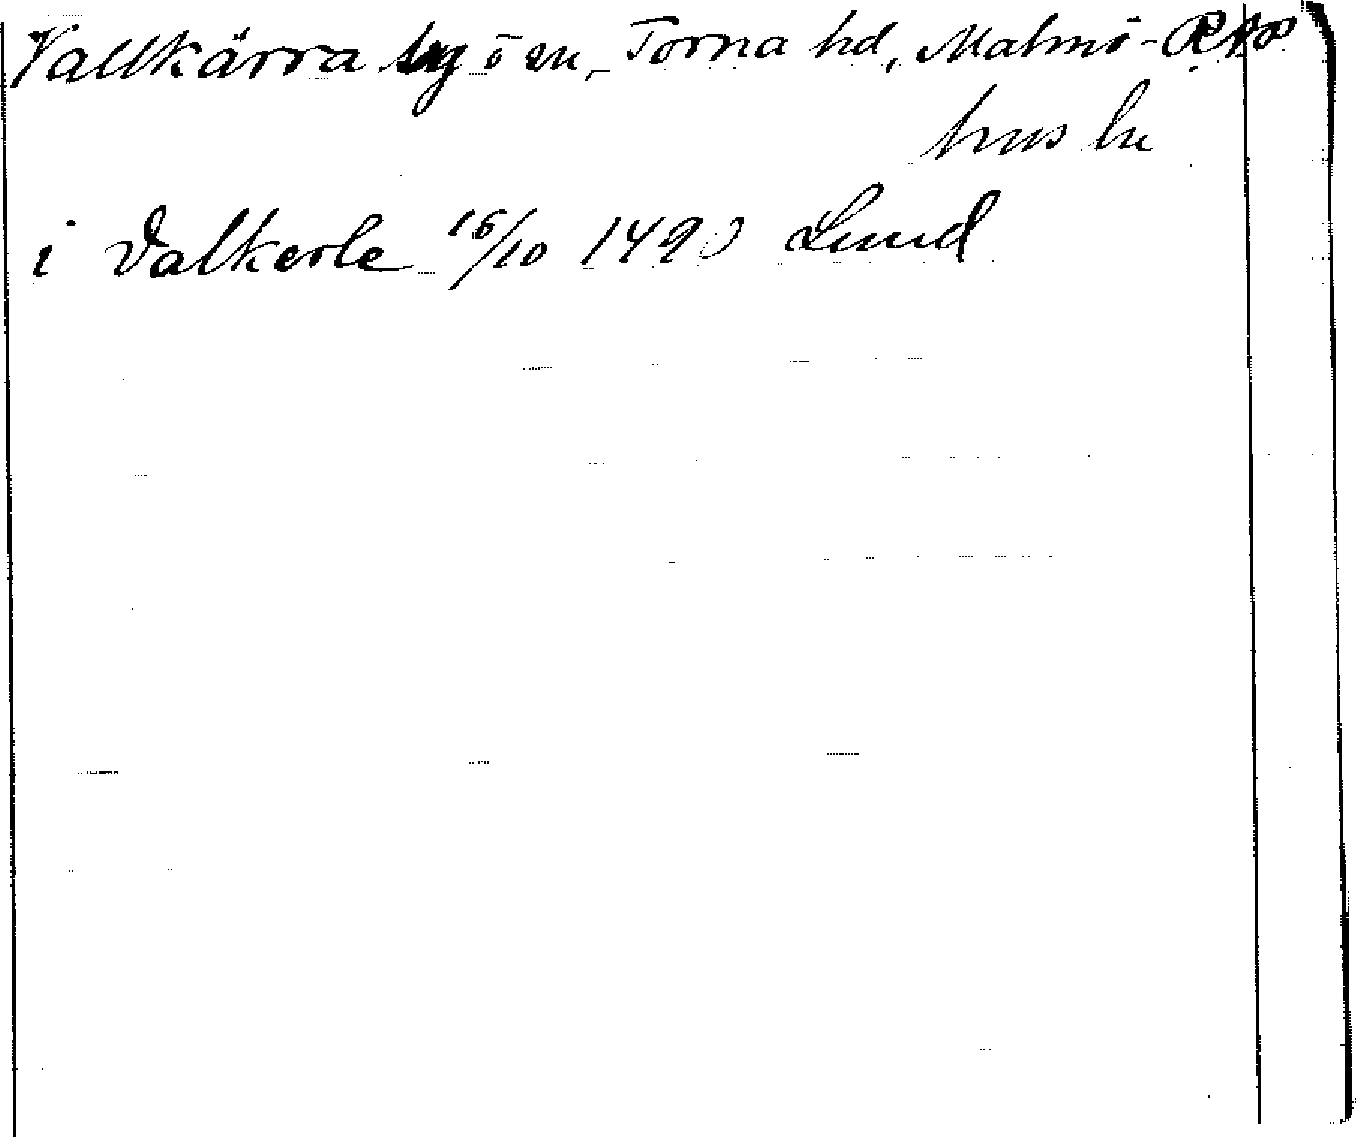 Vallkärra by ö sn, Torna hd, Malmö-
hus ln
i Valkerle 16/10 1490 Lund